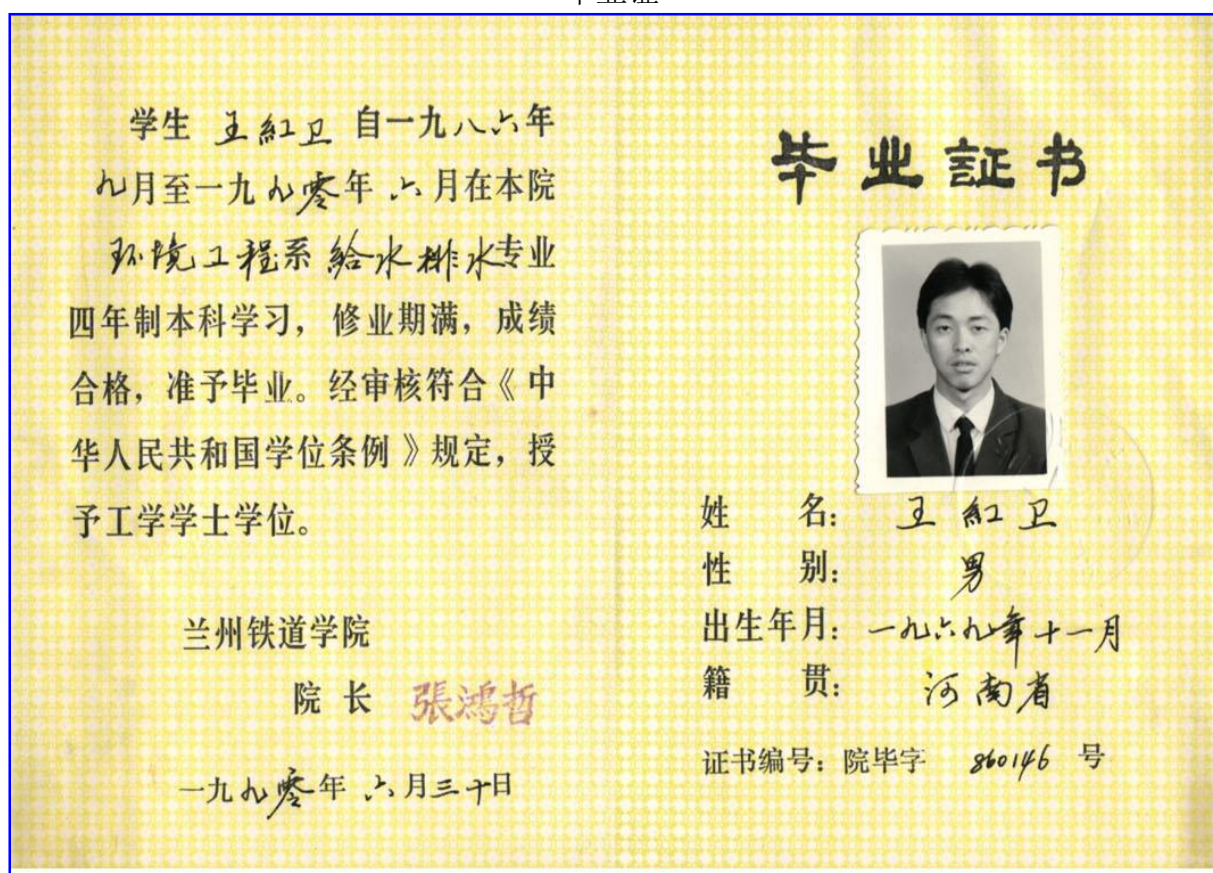 毕业证
学生 王紅卫 自一九八六年
九月至一九九零年 六月在本院
环境工程系 給水排水专业
四年制本科学习，修业期满，成绩
合格，准予毕业。经审核符合《中
华人民共和国学位条例》规定，授
予工学学士学位。
兰州铁道学院
院 长 張鴻哲
一九九零年 六月三十日
毕业証书
姓 名： 王紅卫
性 别： 男
出生年月：一九六九年十一月
籍 贯： 河南省
证书编号：院毕字 860146 号